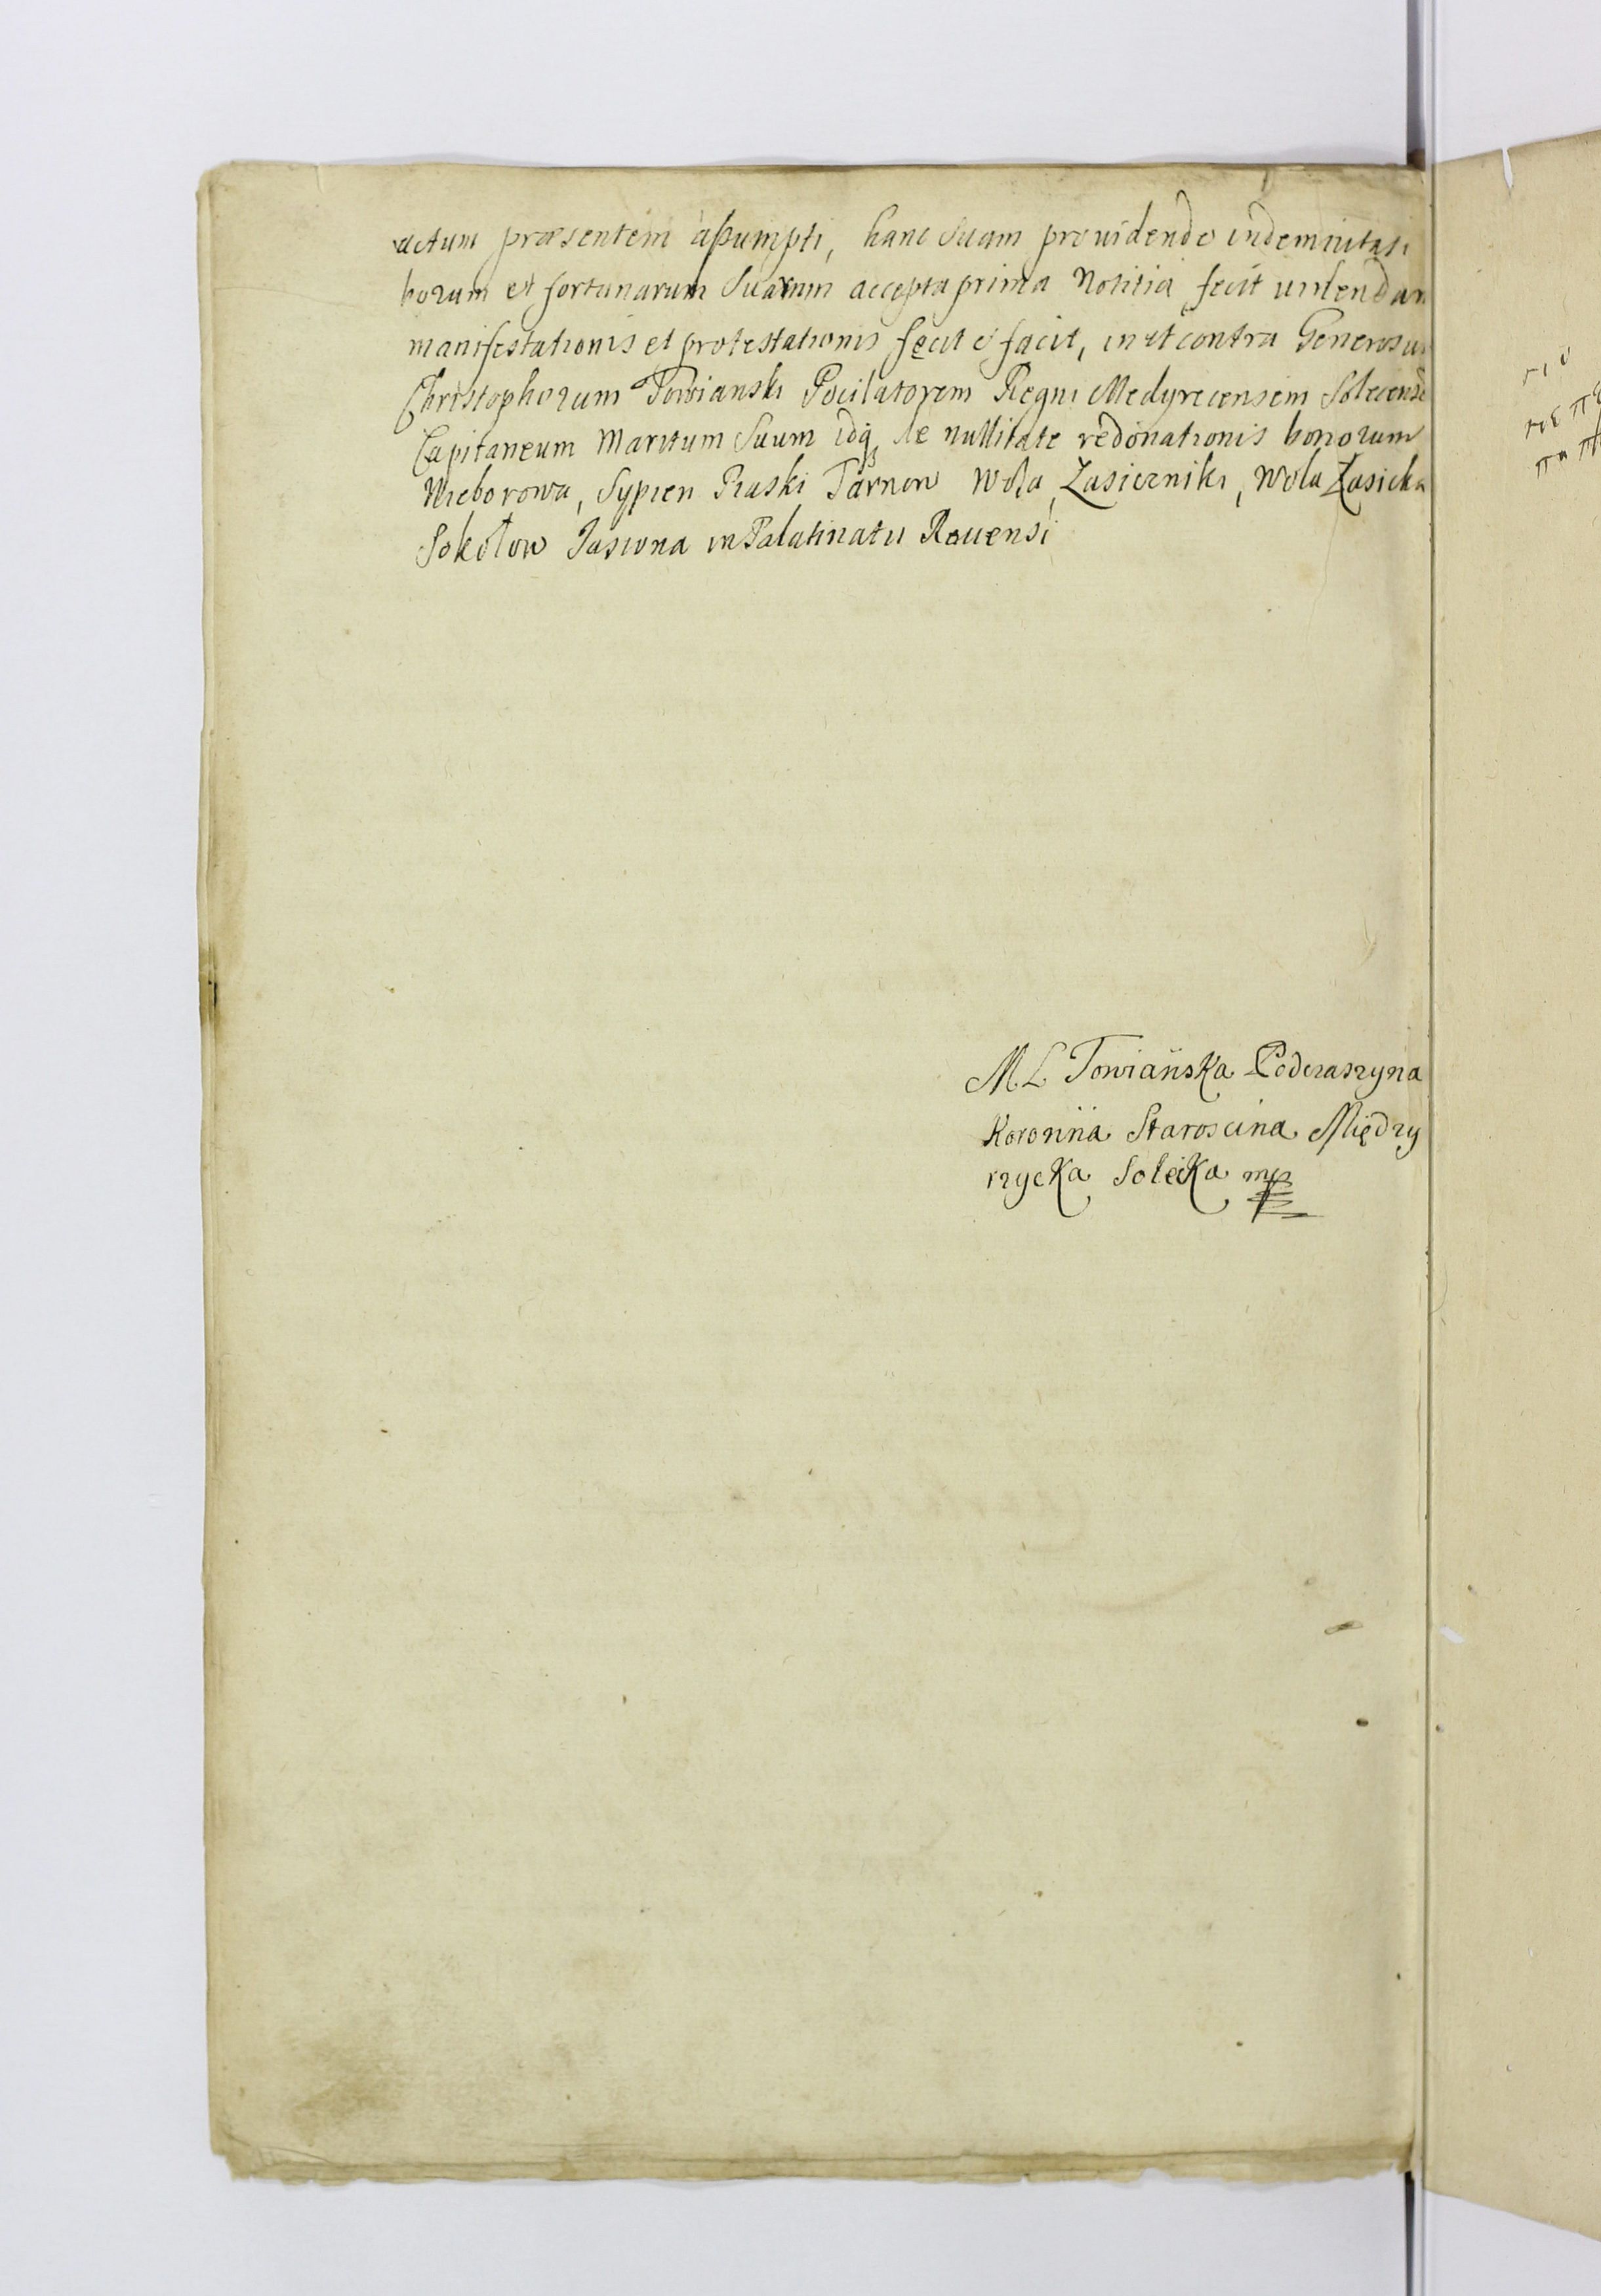 actum præsentem aßumpti, hanc Suam providendo indemnitati
bonorum et fortunarum Suarum accepta prima Notitia fecit
manifestationis et protestationis fecit et facit, in et contra Generosum
Christophorum Towianski Pocilatorem Regni Medyrecensem Solecensem
Capitaneum Maritum Suum idq de nullitate redonationis bonorum
Nieborowa, Sypien Piaski Tarnow Wola, Zasieczniki, Wola Zasieka
Sokołow Jasiona in Palatinatu Rauensi
M L Towiańska Podczaszyna
Koronna Staroscina Między
rzycka Solecka mp